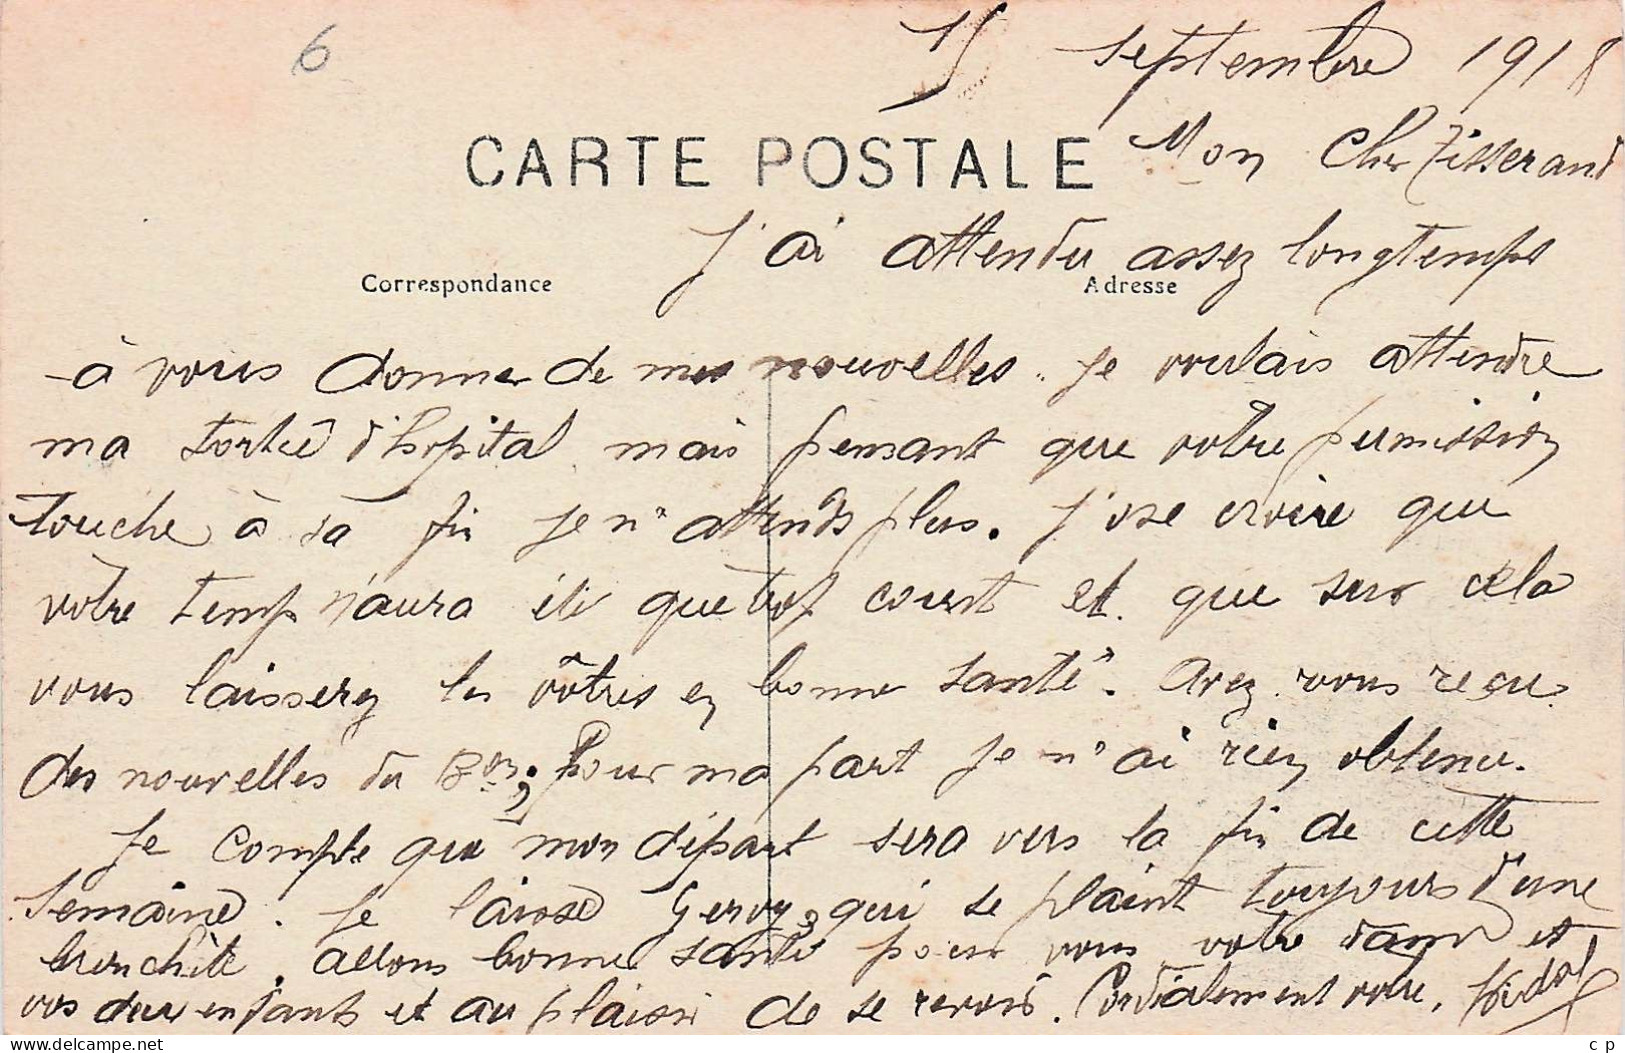 6
15 septembre 1918
CARTE POSTALE
Mon Cher Tisserand
J'ai attendu assez longtemps
Correspondance
Adresse
à vous donner de mes nouvelles. Je voulais attendre
ma sortie d'hopital mais pensant que votre permission
touche à sa fin je n'attends plus. J'ose croire que
votre temp n'aura été que trop court et que sur cela
vous laisserez les vôtres en bonne santé. Avez vous reçu
des nouvelles du Bon; Pour ma part je n'ai rien obtenu.
Je compte que mon départ sera vers la fin de cette
semaine. Je laisse Gervy, qui se plaint toujours d'une
bronchite. allons bonne santé pour vous votre dame et
vos deux enfants et au plaisir de se revoir. Cordialement votre.
c p
www.delcampe.net